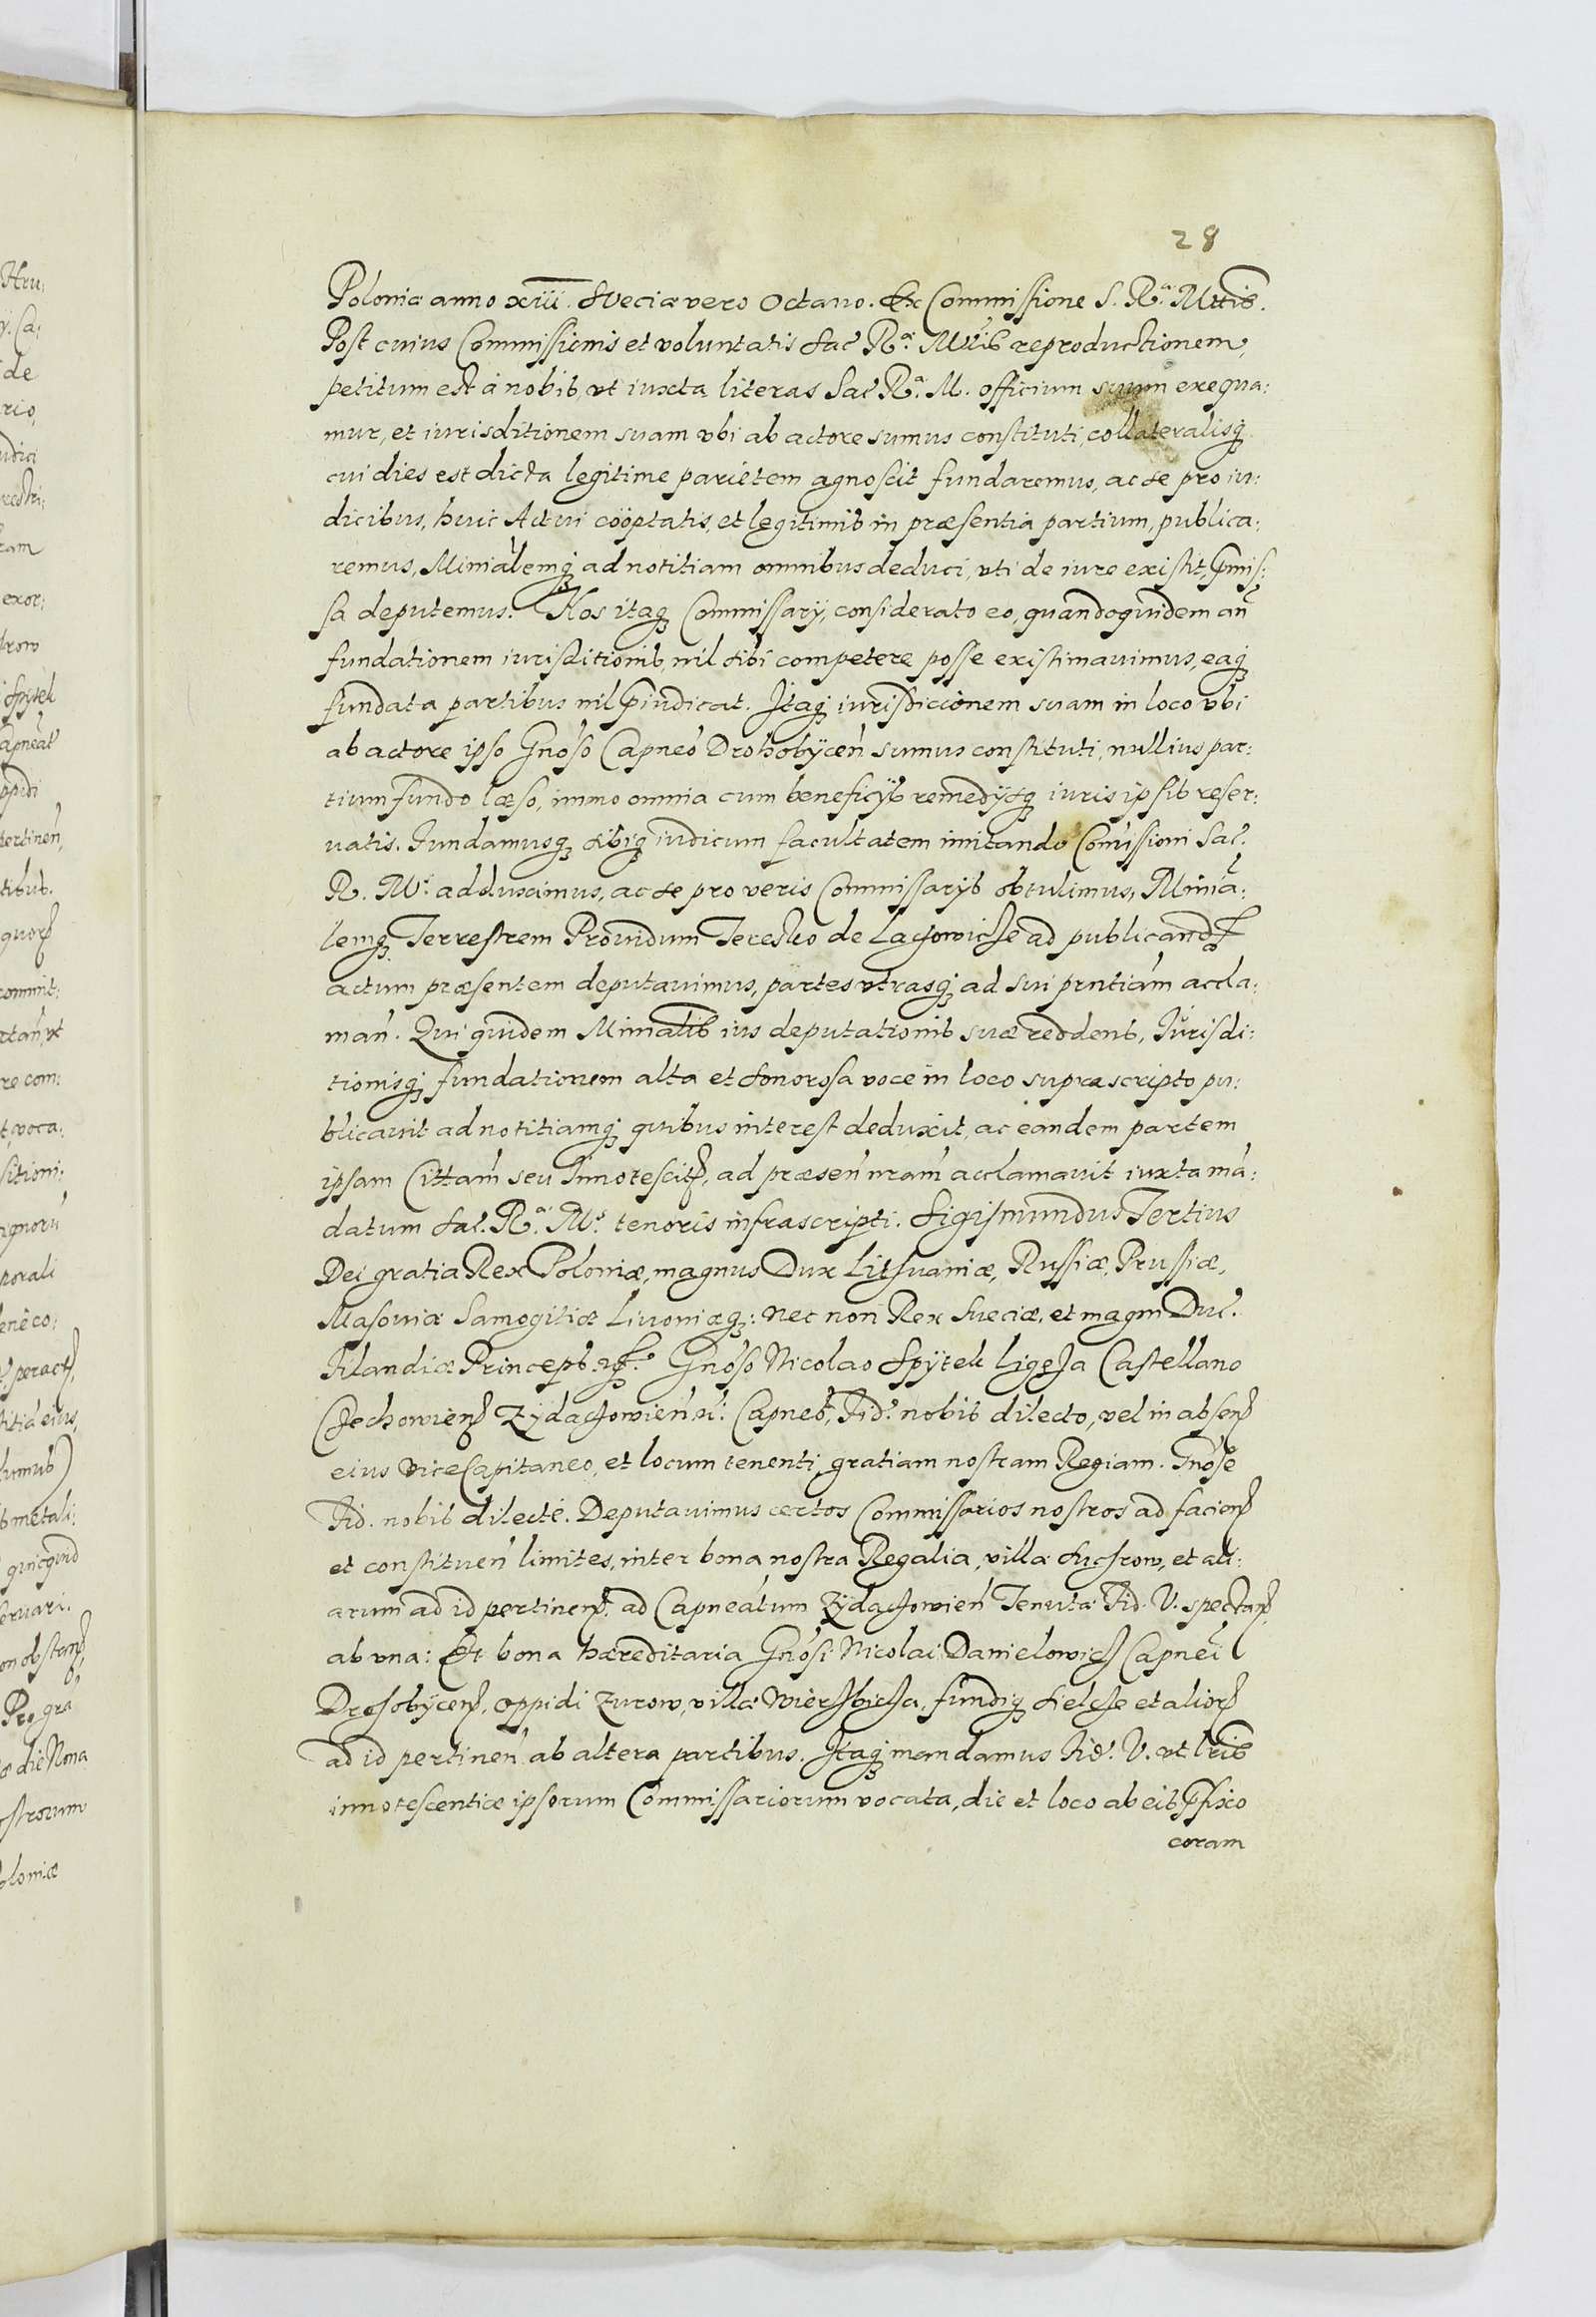 28
Poloniæ anno xiiii. Sveciæ vero Octavo. Ex Commissione S. R.ᵃ Mttis.
Post cuius Commissionis et voluntatis Sac R.ᵃ Mttis reproductionem,
petitum est à nobis, vt iuxta literas Sac R.ᵃ M. officium suum exequa:
mur, et iurisditionem suam vbi ab actore sumus constituti, collateralisq
cui dies est dicta legitime parietem agnoscit fundaremus, ac se pro iu:
dicibus, huic Actui cööptatis, et legitimis in præsentia partium, publica:
remus, Minialemq ad notitiam omnibus deduci, vti de iure existit, pmis:
sa deputemus. Nos itaq Commissarij, considerato eo, quandoquidem añ
fundationem iurisditionis, nil sibi competere posse existimauimus, eaq
fundata partibus nil piudicat. Itaq iurisdiccionem suam in loco vbi
ab actore ipso Gnoso Capneo Drohobÿceń sumus constituti, nullius par:
tium fundo læso, immo omnia cum beneficijs remedijsq iuris ipsis reser:
uatis. Fundamusq sibiq iudicum facultatem imitando Comissioni Sac.
R. Mᵗ. adduximus, ac se pro veris Commissarijs obtulimus, Minia:
lemq Terrestrem Prouidum Teresko de Lachowicze ad publicand
actum præsentem deputauimus, partes vtrasq ad sui pntiam accla:
mań. Qui quidem Minialis ius deputationis suæ reddens, Iurisdi:
tionisq fundationem alta et sonorosa voce in loco supra scripto pu:
blicauit ad notitiamq quibus interest deduxit, ac eandem partem
ipsam Cittam seu Innotescit, ad præseń nram acclamauit iuxta má:
datum Sac. R.ᵃ Mᵗ. tenoris infrascripti. Sigismundus Tertius
Dei gratia Rex Poloniæ, magnus Dux Lithuaniæ, Russiæ, Prussiæ,
Masoviæ Samogitiæ Livoniæq: nec non Rex Sueciæ, et magni Duc.
Filandiæ Princeps. Gnoso Nicolao Spÿtek ligęza Castellano
Czechowien Zÿdachowień Capneo, Fid. nobis dilecto, vel in absen
eius ViceCapitaneo, et locum tenenti gratiam nostram Regiam. Gnose
Fid. nobis dilecte. Deputauimus certos Commissarios nostros ad facien
et constitueń limites, inter bona nostra Regalia, villæ Suchrow, et ali:
arum ad id pertinen, ad Capneatum Zÿdachowień Tenutæ Fid. V. spectan,
ab vna: Et bona hæreditaria Gnosi Nicolai Danielowicz Capnei
Drohobÿcen, oppidi Zurow, villæ Wierzbicza, fundiq Sielcze et alior
ad id pertineń ab altera partibus. Itaq mandamus Fid. V. vt lris
innotescentiæ ipsorum Commissariorum vocata, die et loco ab eis pfixo
coram